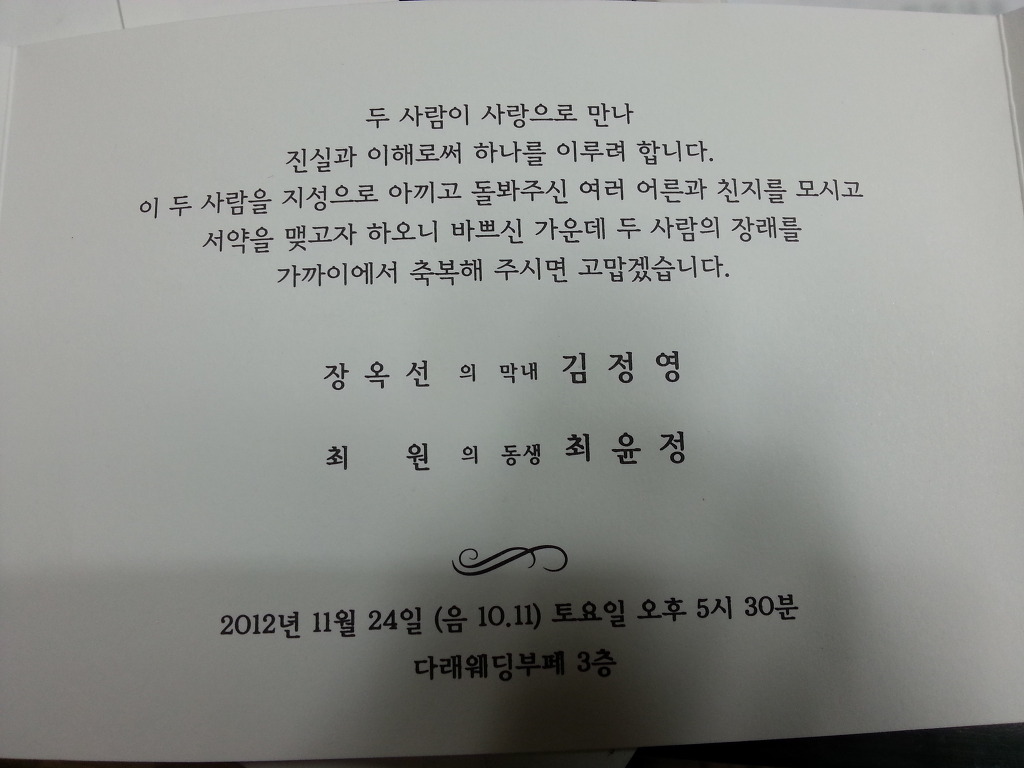 두 사람이 사랑으로 만나
진실과 이해로써 하나를 이루려 합니다.
이 두 사람을 지성으로 아끼고 돌봐주신 여러 어른과 친지를 모시고
서약을 맺고자 하오니 바쁘신 가운데 두 사람의 장래를
가까이에서 축복해 주시면 고맙겠습니다.
장 옥 선 의 막내 김 정 영
최 원 의 동생 최 윤 정
2012년 11월 24일 (음 10.11) 토요일 오후 5시 30분
다래웨딩부페 3층